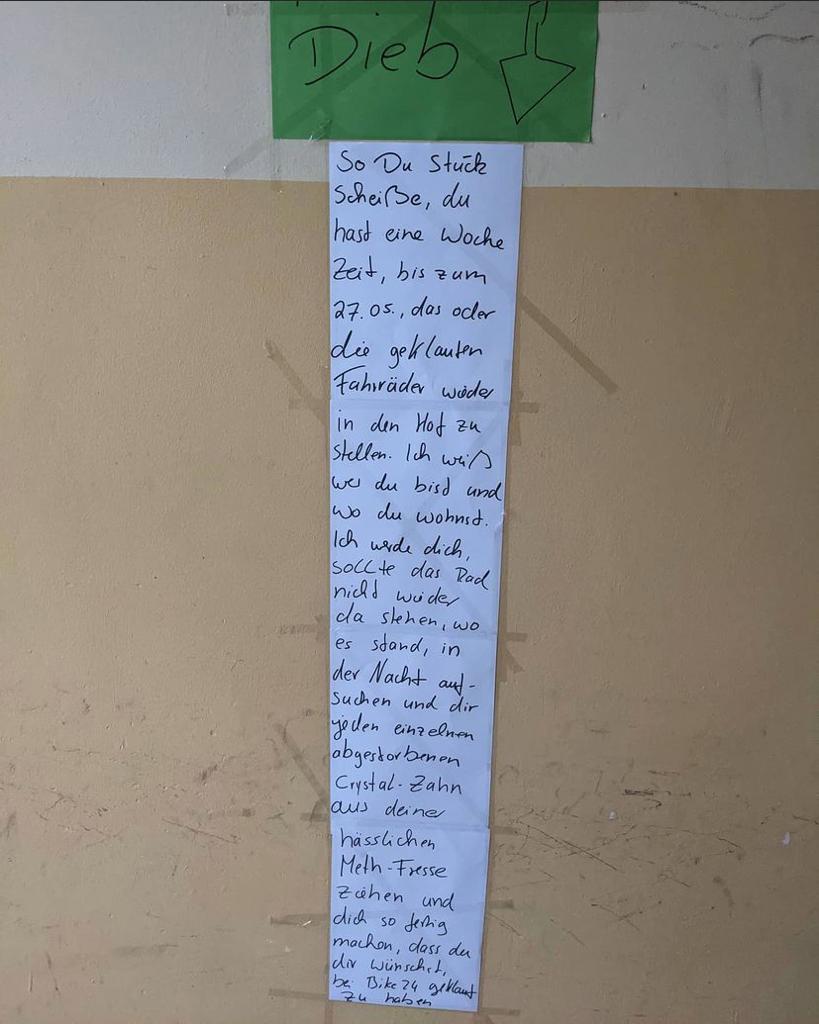 Dieb
So Du Stück
Scheiße, du
hast eine Woche
Zeit, bis zum
27.05., das oder
die geklauten
Fahrräder wieder
in den Hof zu
stellen. Ich weiß
wer du bist und
wo du wohnst.
Ich werde dich,
sollte das Rad
nicht wieder
da stehen, wo
es stand, in
der Nacht auf-
suchen und dir
jeden einzelnen
abgestorbenen
Crystal-Zahn
aus deiner
hässlichen
Meth-Fresse
ziehen und
dich so fertig
machen, dass du
dir wünschst,
bei Bike24 geklaut
zu haben